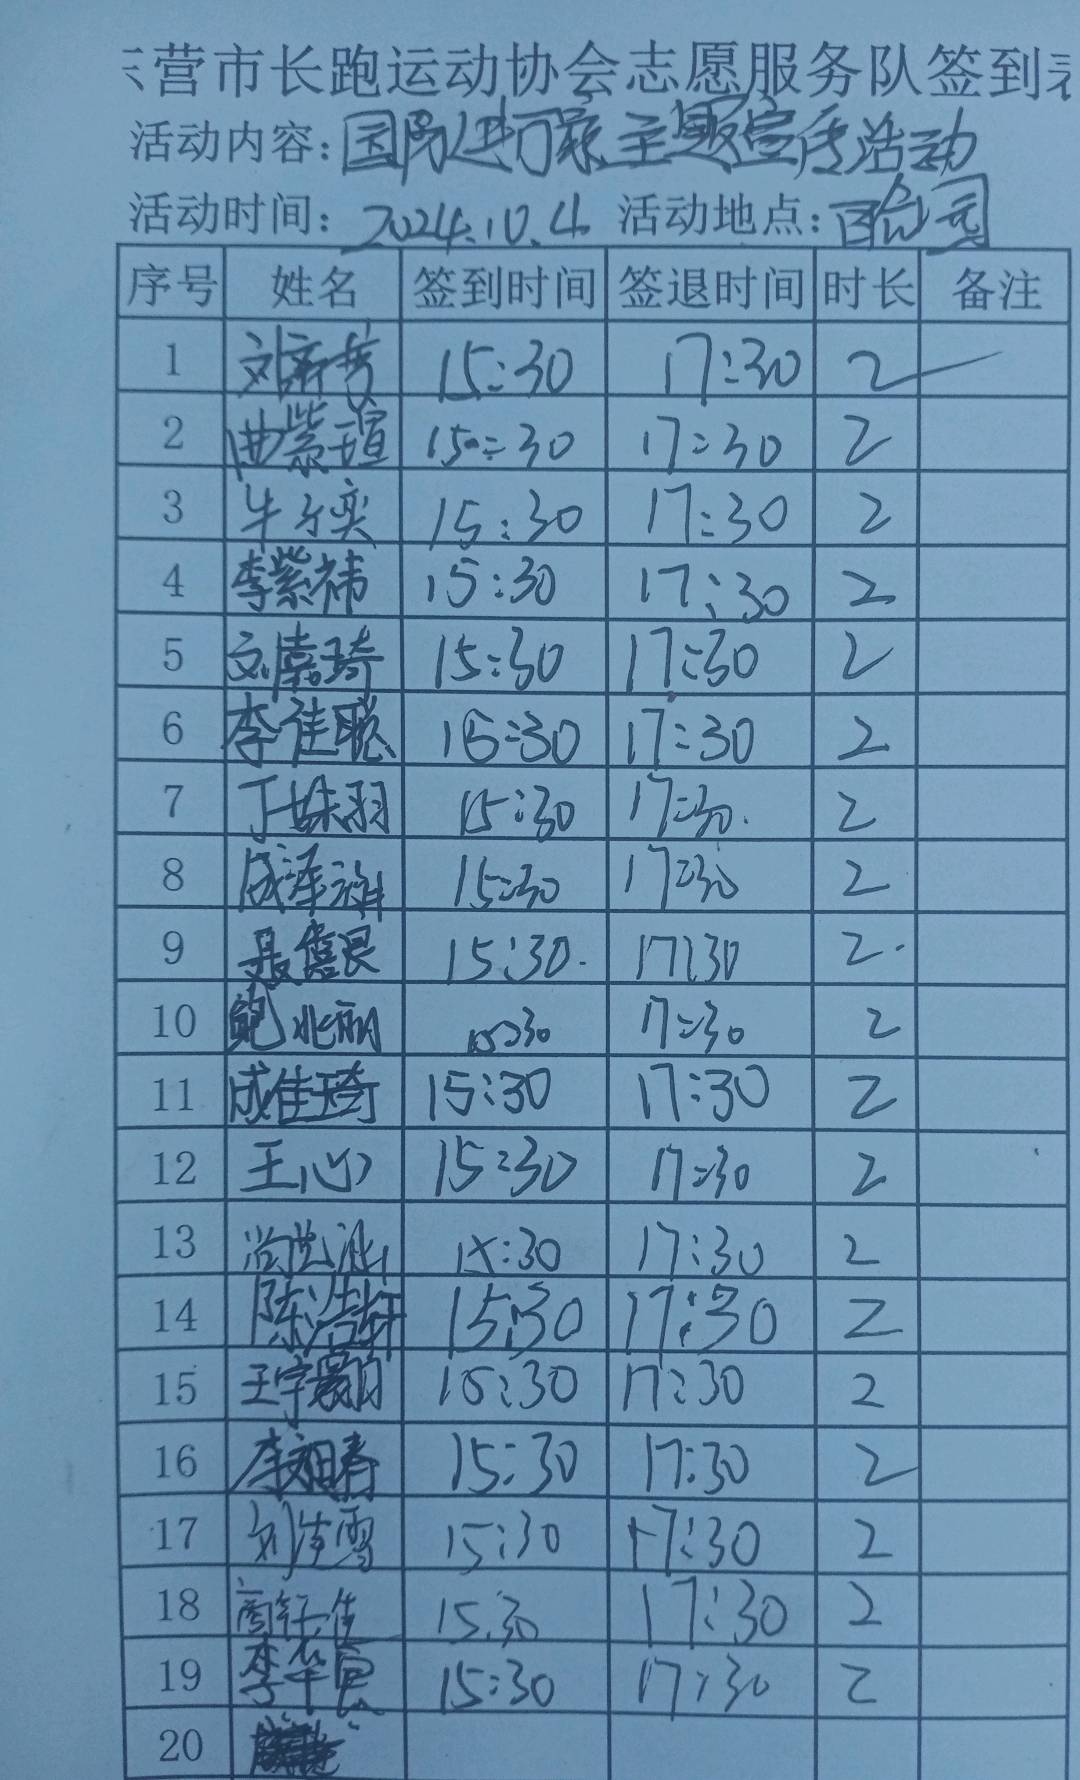 营市长跑运动协会志愿服务队签到
活动内容: 国防进万家主题宣传活动
活动时间: 2024.10.4 活动地点: 百合园
序号 姓名 签到时间 签退时间 时长 备注
1 15:30 17:30 2
2 曲紫瑄 15:30 17:30 2
3 牛子奕 15:30 17:30 2
4 李紫祎 15:30 17:30 2
5 刘嘉琦 15:30 17:30 2
6 李佳聪 15:30 17:30 2
7 丁姝羽 15:30 17:30. 2
8 成泽 15:30 17:30 2
9 聂 15:30. 17:30 2.
10 鲍兆 15:30 17:30 2
11 成佳琦 15:30 17:30 2
12 王心 15:30 17:30 2
13 15:30 17:30 2
14 陈浩轩 15:30 17:30 2
15 王宇 15:30 17:30 2
16 李 春 15:30 17:30 2
17 刘 雪 15:30 17:30 2
18 佳 15:30 17:30 2
19 李 15:30 17:30 2
20